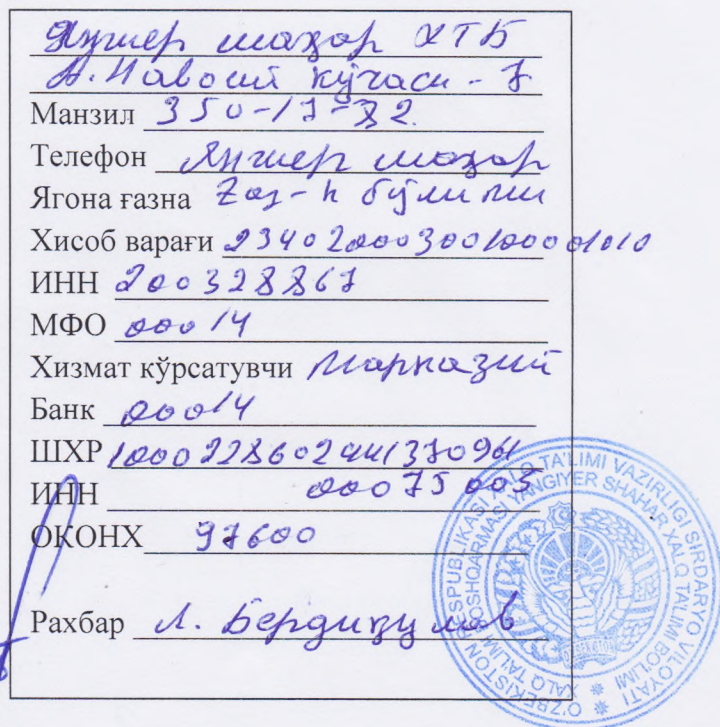 Янгиер шаҳар ХТБ
А.Навоий кўчаси - 7
Манзил 350-17-32
Телефон Янгиер шаҳар
Ягона ғазна Ғаз-н бўлими
Хисоб варағи 23402000300100001010
ИНН 200328867
МФО 00014
Хизмат кўрсатувчи Марказий
Банк 00014
ШХР 100022860244137096
ИНН 00075003
ОКОНХ 97600
Рахбар Л. Бердиқулов
O'ZBEKISTON RESPUBLIKASI XALQ TA'LIMI VAZIRLIGI SIRDARYO VILOYATI
XALQ TA'LIMI BOSHQARMASI YANGIYER SHAHAR XALQ TALIMI BO'LIMI